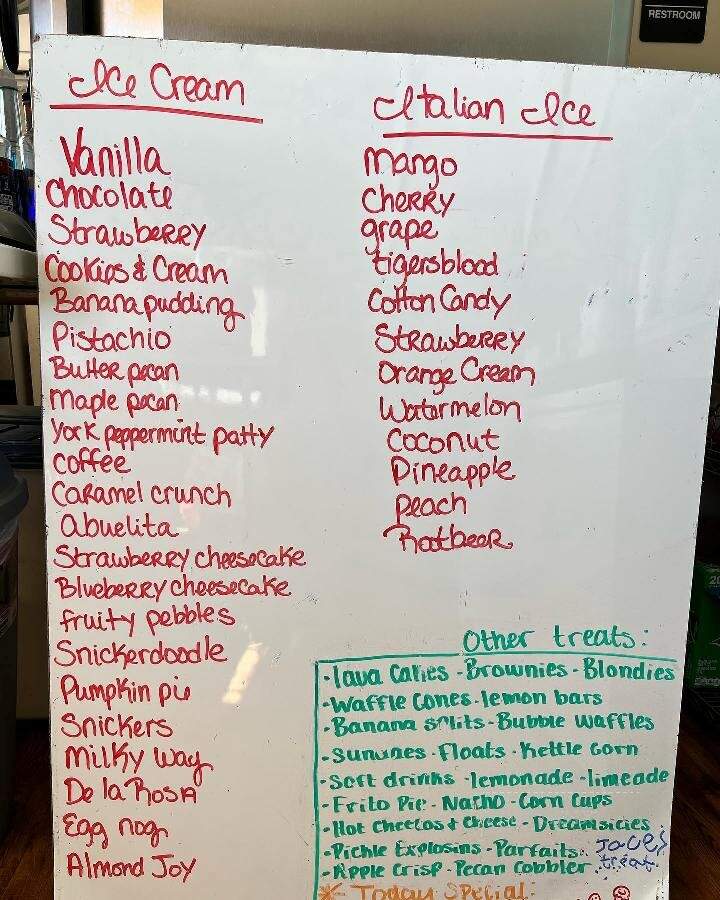 RESTROOM
Ice Cream
Vanilla
Chocolate
Strawberry
Cookies & Cream
Banana pudding
Pistachio
Butter pecan
Maple pecan
York peppermint patty
coffee
Caramel crunch
abuelita
Strawberry cheesecake
Blueberry cheesecake
fruity pebbles
Snickerdoodle
Pumpkin pie
Snickers
Milky Way
De la Rosa
Egg nog
Almond Joy
Italian Ice
Mango
Cherry
grape
tigersblood
Cotton Candy
Strawberry
Orange Cream
Watermelon
Coconut
Pineapple
Peach
Rootbeer
Other treats:
·lava Cakes -Brownies - Blondies
·Waffle Cones · lemon bars
·Banana splits - Bubble waffles
·Sundaes · Floats · Kettle Corn
·Soft drinks -lemonade -limeade
·Frito Pie - Nacho - Corn Cups
·Hot Cheetos & Cheese - Dreamsicles
·Pickle Explosins - Parfaits.
·Apple Crisp - Pecan Cobbler
Joce's
treat
* Today Special: